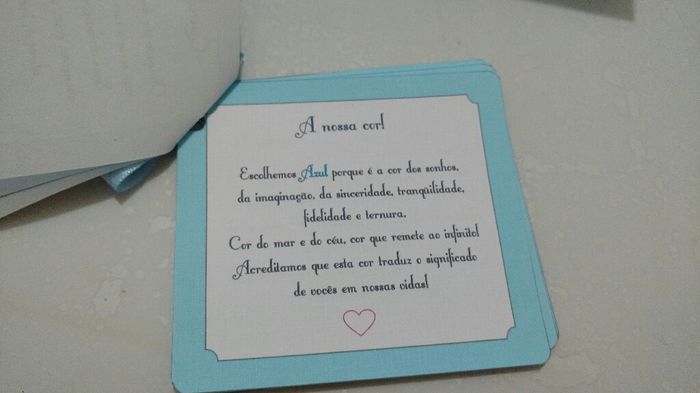 A nossa cor!
Escolhemos Azul porque é a cor dos sonhos,
da imaginação, da sinceridade, tranqüilidade,
fidelidade e ternura.
Cor do mar e do céu, cor que remete ao infinito!
Acreditamos que esta cor traduz o significado
de vocês em nossas vidas!